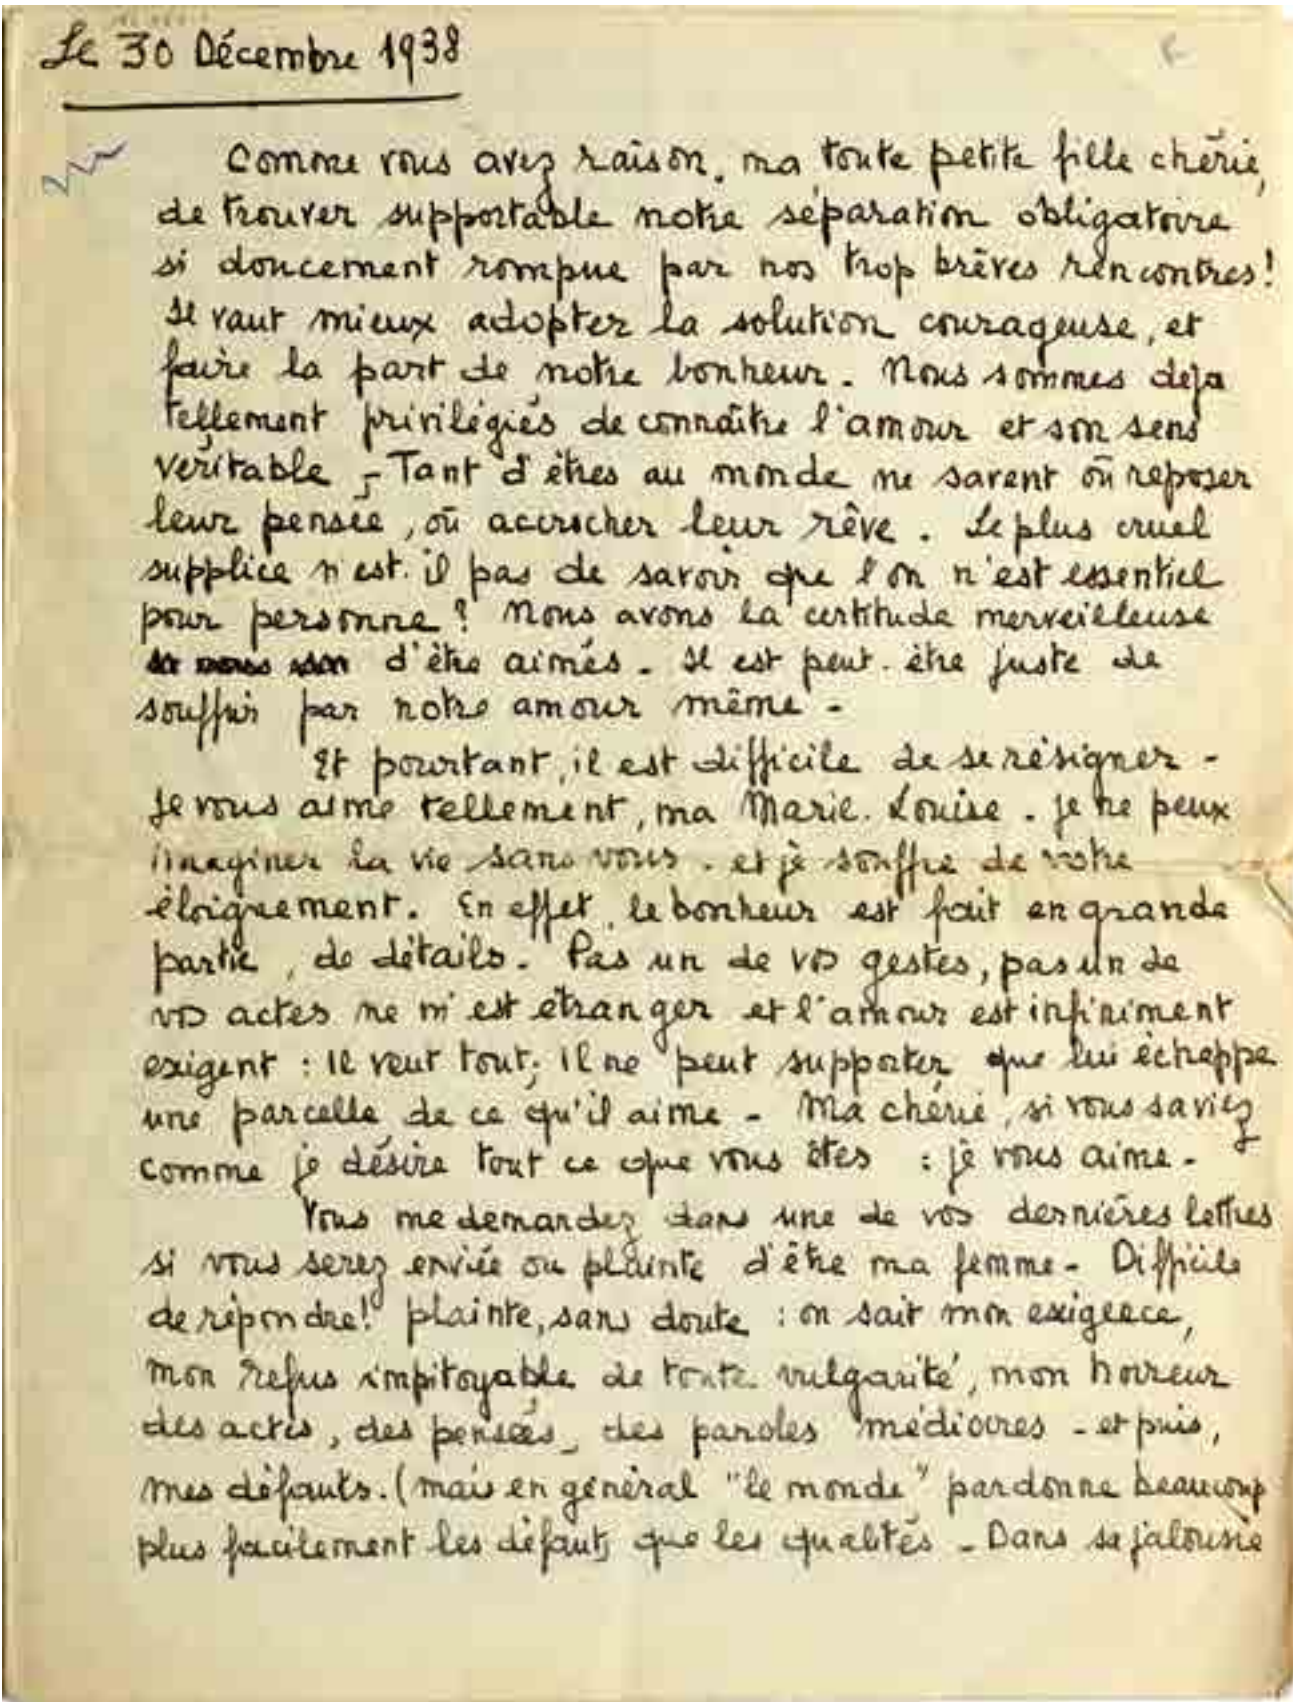 Le 30 Décembre 1938
Comme vous avez raison, ma toute petite fille chérie,
de trouver supportable notre séparation obligatoire
si doucement rompue par nos trop brèves rencontres!
Il vaut mieux adopter la solution courageuse, et
faire la part de notre bonheur. Nous sommes déjà
tellement privilégiés de connaître l'amour et son sens
véritable - Tant d'êtres au monde ne savent où reposer
leur pensée, où accrocher leur rêve. Le plus cruel
supplice n'est-il pas de savoir que l'on n'est essentiel
pour personne? Nous avons la certitude merveilleuse
d'être aimés. Il est peut-être juste de
souffrir par notre amour même -
Et pourtant, il est difficile de se résigner -
Je vous aime tellement, ma Marie-Louise. je ne peux
imaginer la vie sans vous. et je souffre de votre
éloignement. En effet, le bonheur est fait en grande
partie, de détails. Pas un de vos gestes, pas un de
vos actes ne m'est étranger et l'amour est infiniment
exigent : Il veut tout; il ne peut supporter que lui échappe
une parcelle de ce qu'il aime - Ma chérie, si vous saviez
comme je désire tout ce que vous êtes : je vous aime -
Vous me demandez dans une de vos dernières lettres
si vous serez enviée ou plainte d'être ma femme - Difficile
de répondre! plainte, sans doute : on sait mon exigence,
mon refus impitoyable de toute vulgarité, mon horreur
des actes, des pensées, des paroles médiocres - et puis,
mes défauts. (mais en général "le monde" pardonne beaucoup
plus facilement les défauts que les qualités - Dans sa jalousie